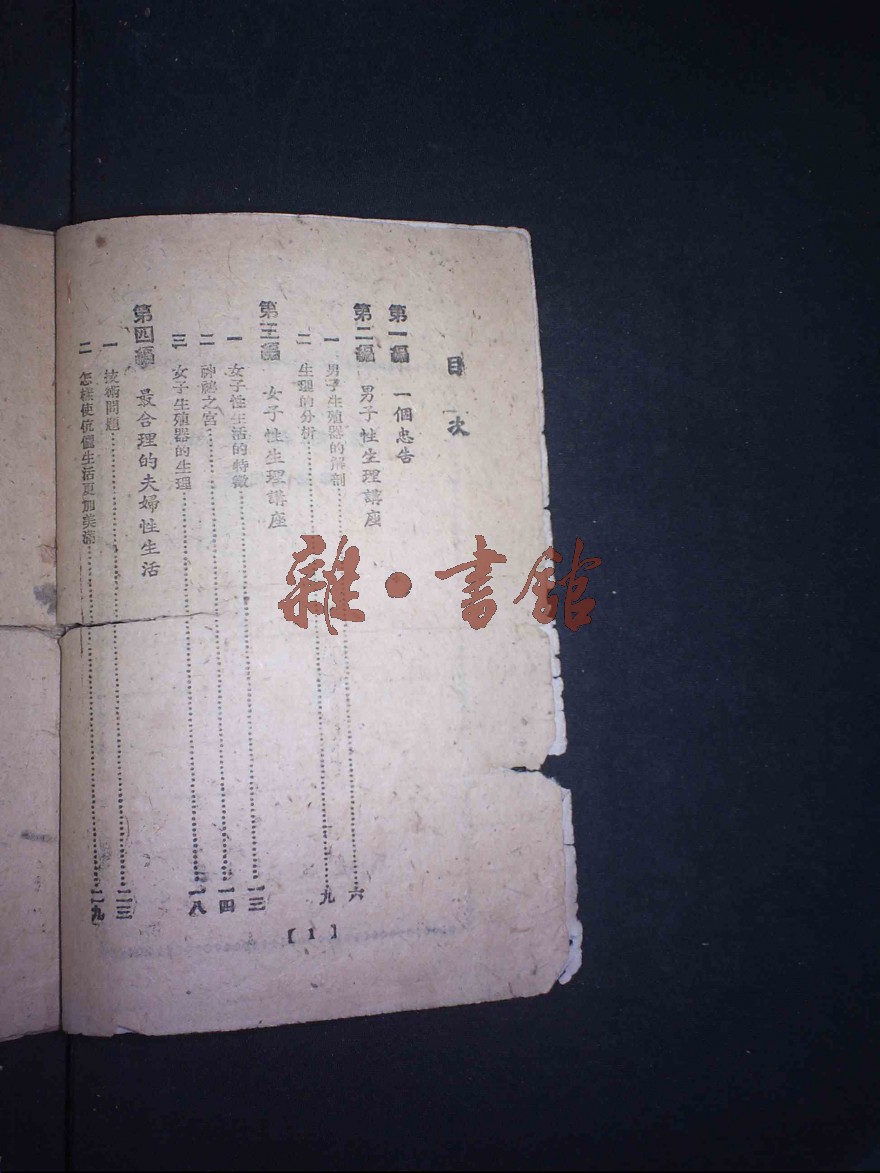 目次
第一編 一個忠告
第二編 男子性生理講座
一 男子生殖器的解剖……六
二 生理的分析……九
第三編 女子性生理講座
一 女子性生活的特徵……一三
二 神祕之宮……一四
三 女子生殖器的生理……一八
第四編 最合理的夫婦性生活
一 技術問題……二三
二 怎樣使伉儷生活更加美滿……二九
【1】
雜·書館